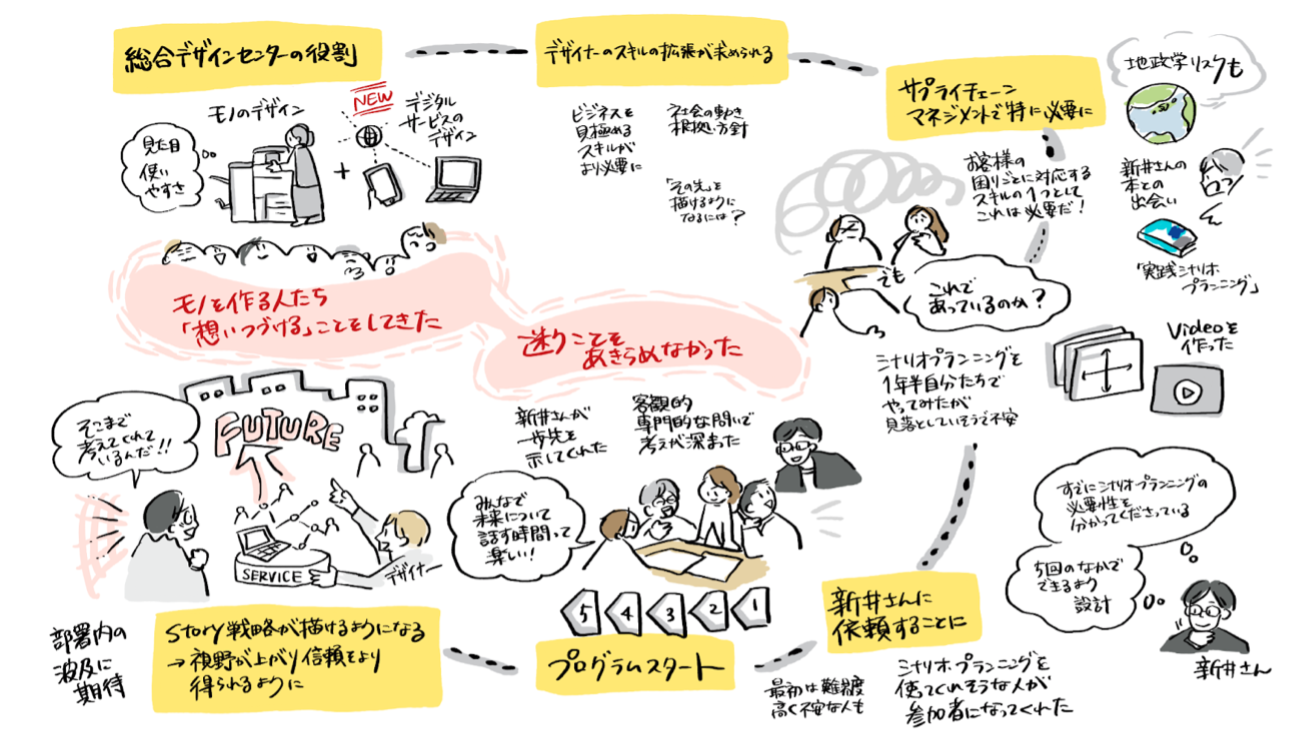 総合デザインセンターの役割
モノのデザイン
見た目
使い
やすさ
+
NEW
デジタル
サービスの
デザイン
デザイナーのスキルの拡張が求められる
ビジネスを
見極める
スキルが
より必要に
社会の動き
根拠い方針
「その先」を
描けるように
なるには?
サプライチェーン
マネジメントで特に必要に
地政学リスクも
お客様の
困りごとに対応する
スキルの1つとして
これは必要だ!
新井さんの
本との
出会い
「実践シナリオ
プランニング」
でも
これで
あっているのか?
シナリオプランニングを
1年半自分たちで
やってみたが
見落としていそうで不安
Videoを
作った
モノを作る人たち
「想いつづける」ことをしてきた
迷うことを
あきらめなかった
すでにシナリオプランニングの
必要性を
分かってくださっている
5回のなかで
できるよう
設計
新井さん
新井さんに
依頼することに
シナリオプランニングを
使ってくれそうな人が
参加者になってくれた
最初は難易度
高く不安な人も
プログラムスタート
5 4 3 2 1
新井さんが
一歩先を
示してくれた
客観的
専門的な問いで
考えが深まった
みんなで
未来について
話す時間って
楽しい!
Story戦略が描けるようになる
→視野が上がり信頼をより
得られるように
FUTURE
SERVICE
デザイナー
そこまで
考えてくれて
いるんだ!!
部署内の
波及に
期待